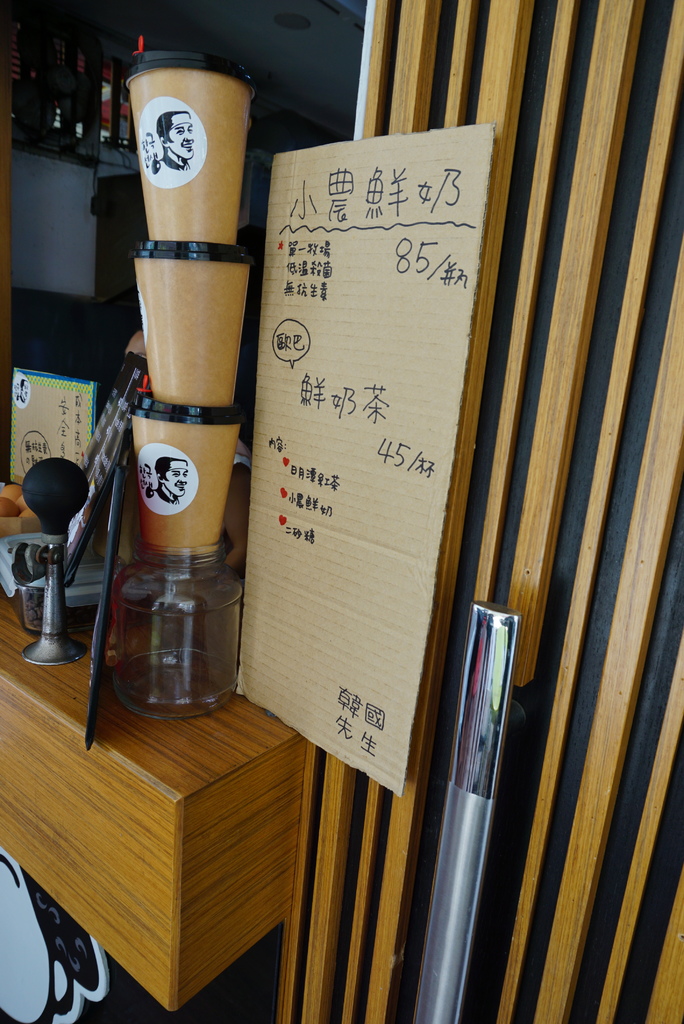 小農鮮奶
單一牧場
低溫殺菌
無抗生素
85/瓶
歐巴
鮮奶茶
45/杯
內容:
日月潭紅茶
小農鮮奶
二砂糖
韓國
先生